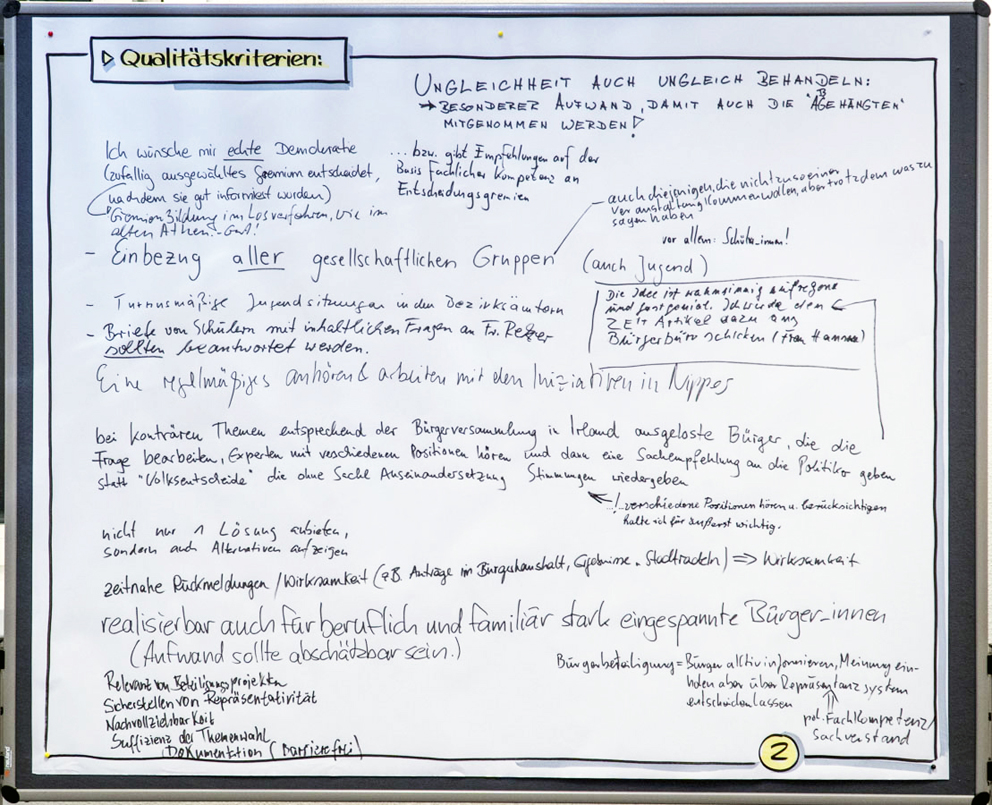 ▷ Qualitätskriterien:
UNGLEICHHEIT AUCH UNGLEICH BEHANDELN:
→ BESONDERER AUFWAND, DAMIT AUCH DIE "ABGEHÄNGTEN"
MITGENOMMEN WERDEN!
Ich wünsche mir echte Demokratie
(zufällig ausgewähltes Gremium entscheidet,
nachdem sie gut informiert wurden)
Gremienbildung im Losverfahren, wie im
alten Athen! - Gut!
... bzw. gibt Empfehlungen auf der
Basis fachlicher Kompetenz an
Entscheidungsgremien
auch diejenigen, die nicht zu so einer
Veranstaltung kommen wollen, aber trotzdem was zu
sagen haben
vor allem: Schüler_innen!
- Einbezug aller gesellschaftlichen Gruppen (auch Jugend)
- Turnusmäßige Jugendsitzungen in den Bezirksämtern
- Briefe von Schülern mit inhaltlichen Fragen an Fr. Reker
sollten beantwortet werden.
Die Idee ist wahnsinnig aufregend
und fast genial. Ich werde den
ZEIT Artikel dazu ans
Bürgerbüro schicken (Frau
Eine regelmäßiges anhören & arbeiten mit den Iniziativen in Nippes
bei konträren Themen entsprechend der Bürgerversammlung in Irland ausgeloste Bürger, die die
Frage bearbeiten, Experten mit veschiedenen Positionen hören und dann eine Sachempfehlung an die Politiker geben
statt "Volksentscheide" die ohne Sachl Auseinandersetzung Stimmungen wiedergeben
! verschiedene Positionen hören u. berücksichtigen
halte ich für äußerst wichtig.
nicht nur 1 Lösung anbieten,
sondern auch Alternativen aufzeigen
zeitnahe Rückmeldungen / Wirksamkeit (z.B. Anträge im Bürgerhaushalt, Ergebnisse Stadtradeln) ⇒ Wirksamkeit
realisierbar auch für beruflich und familiär stark eingespannte Bürger_innen
(Aufwand sollte abschätzbar sein.)
Relevanz von Beteiligungsprojekten
Sicherstellen von Repräsentativität
Nachvollziehbarkeit
Suffizienz der Themenwahl
Dokumentation (barrierefrei)
Bürgerbeteiligung = Bürger aktiv informieren, Meinung ein-
holen aber über Repräsentanzsystem
entscheiden lassen
pol. Fachkompetenz/
Sachverstand
2